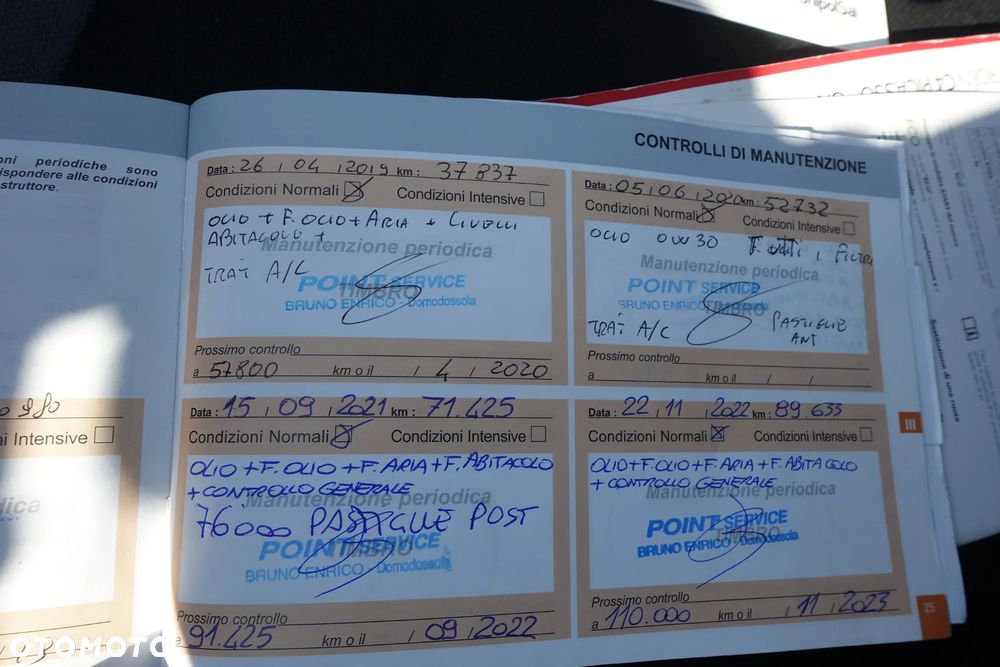 CONTROLLI DI MANUTENZIONE
oni periodiche sono
rispondere alle condizioni
struttore.
Data : 26 / 04 / 2019 km : 37837
Condizioni Normali Condizioni Intensive
OLIO + F. OLIO + ARIA + LIVELLI
ABITACOLO +
Manutenzione periodica
TRAT A/C
POINT SERVICE
TIMBRO
BRUNO ENRICO - Domodossola
Prossimo controllo
a 57800 km o il / 4 / 2020
Data : 05 / 06 / 2020 km : 52732
Condizioni Normali Condizioni Intensive
OLIO 0W30
Manutenzione periodica
POINT SERVICE
BRUNO ENRICO
TIMBRO
TRAT A/C PASTIGLIE
ANT
Prossimo controllo
a km o il / /
i Intensive
dica
Data : 15 / 09 / 2021 km : 71.425
Condizioni Normali Condizioni Intensive
OLIO + F. OLIO + F. ARIA + F. ABITACOLO
+ CONTROLLO GENERALE
Manutenzione periodica
76000 PASTIGLIE POST
POINT SERVICE
TIMBRO
BRUNO ENRICO - Domodossola
Prossimo controllo
a 91.425 km o il / 09 / 2022
Data : 22 / 11 / 2022 km : 89.633
Condizioni Normali Condizioni Intensive
OLIO + F. OLIO + F. ARIA + F. ABITACOLO
+ CONTROLLO GENERALE
Manutenzione periodica
POINT SERVICE
TIMBRO
BRUNO ENRICO - Domodossola
Prossimo controllo
a 110.000 km o il / 11 / 2023
III
25
Sostituzione di una ruota
OTOMOTO